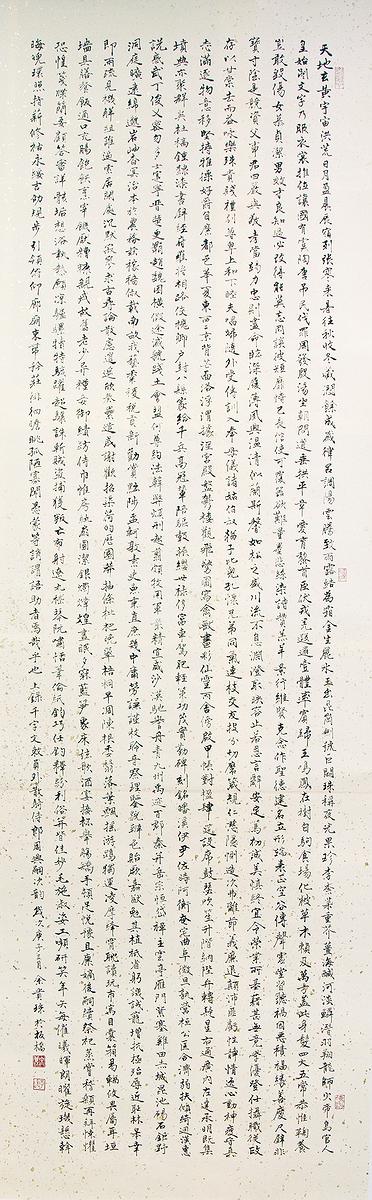 天地玄黃宇宙洪荒日月盈昃辰宿列張寒來暑往秋收冬藏閏餘成歲律呂調陽雲騰致雨露結為霜金生麗水玉出崑岡劍號巨闕珠稱夜光果珍李柰菜重芥薑海鹹河淡鱗潛羽翔龍師火帝鳥官人
皇始制文字乃服衣裳推位讓國有虞陶唐弔民伐罪周發殷湯坐朝問道垂拱平章愛育黎首臣伏戎羌遐邇壹體率賓歸王鳴鳳在樹白駒食場化被草木賴及萬方蓋此身髮四大五常恭惟鞠養
豈敢毀傷女慕貞潔男效才良知過必改得能莫忘罔談彼短靡恃己長信使可覆器欲難量墨悲絲染詩讚羔羊景行維賢克念作聖德建名立形端表正空谷傳聲虛堂習聽禍因惡積福緣善慶尺璧非
寶寸陰是競資父事君曰嚴與敬孝當竭力忠則盡命臨深履薄夙興溫凊似蘭斯馨如松之盛川流不息淵澄取映容止若思言辭安定篤初誠美慎終宜令榮業所基藉甚無竟學優登仕攝職從政
存以甘棠去而益詠樂殊貴賤禮別尊卑上和下睦夫唱婦隨外受傅訓入奉母儀諸姑伯叔猶子比兒孔懷兄弟同氣連枝交友投分切磨箴規仁慈隱惻造次弗離節義廉退顛沛匪虧性靜情逸心動神疲守真
志滿逐物意移堅持雅操好爵自縻都邑華夏東西二京背芒面洛浮渭據涇宮殿盤鬱樓觀飛驚圖寫禽獸畫彩仙靈丙舍傍啟甲帳對楹肆筵設席鼓瑟吹笙升階納陛弁轉疑星右通廣內左達承明既集
墳典亦聚群英杜稿鍾隸漆書壁經府羅將相路俠槐卿戶封八縣家給千兵高冠陪輦驅轂振纓世祿侈富車駕肥輕策功茂實勒碑刻銘磻溪伊尹佐時阿衡奄宅曲阜微旦孰營桓公匡合濟弱扶傾綺迴漢惠
說感武丁俊乂密勿多士寔寧晉楚更霸趙魏困橫假途滅虢踐土會盟何遵約法韓弊煩刑起翦頗牧用軍最精宣威沙漠馳譽丹青九州禹跡百郡秦并嶽宗恒岱禪主云亭雁門紫塞雞田赤城昆池碣石鉅野
洞庭曠遠綿邈巖岫杳冥治本於農務茲稼穡俶載南畝我藝黍稷稅熟貢新勸賞黜陟孟軻敦素史魚秉直庶幾中庸勞謙謹敕聆音察理鑑貌辨色貽厥嘉猷勉其祗植省躬譏誡寵增抗極殆辱近恥林皋幸
即兩疏見機解組誰逼索居閒處沉默寂寥求古尋論散慮逍遙欣奏累遣慼謝歡招渠荷的歷園莽抽條枇杷晚翠梧桐早凋陳根委翳落葉飄颻遊鵾獨運凌摩絳霄耽讀玩市寓目囊箱易輶攸畏屬耳垣
牆具膳餐飯適口充腸飽飫烹宰飢厭糟糠親戚故舊老少異糧妾御績紡侍巾帷房紈扇圓潔銀燭煒煌晝眠夕寐藍筍象床弦歌酒宴接杯舉觴矯手頓足悅豫且康嫡後嗣續祭祀蒸嘗稽顙再拜悚懼
恐惶箋牒簡要顧答審詳骸垢想浴執熱願涼驢騾犢特駭躍超驤誅斬賊盜捕獲叛亡布射遼丸嵇琴阮嘯恬筆倫紙鈞巧任釣釋紛利俗並皆佳妙毛施淑姿工顰妍笑年矢每催曦暉朗曜璇璣懸斡
晦魄環照指薪修祜永綏吉劭矩步引領俯仰廊廟束帶矜莊徘徊瞻眺孤陋寡聞愚蒙等誚謂語助者焉哉乎也 上錄千字文敕員外散騎侍郎周興嗣次韻 歲次庚子三月 余貴珠於板橋